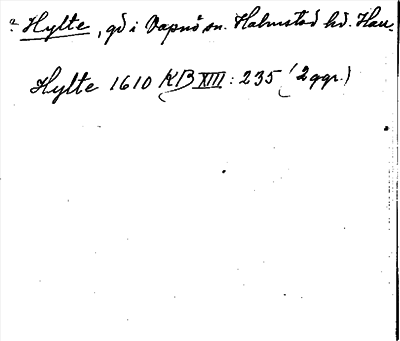 ? Hylte, gd i Vapnö sn. Halmstad hd. Hall.
Hylte 1610 KB XIII: 235 (2 ggr.)